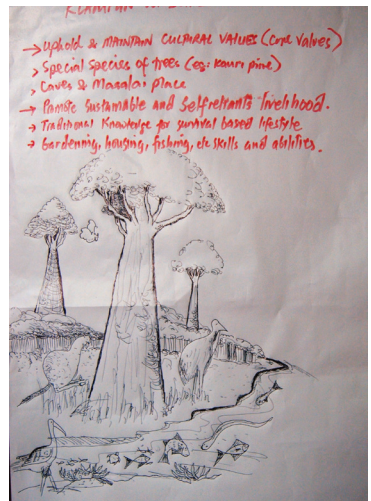 → Uphold & MAINTAIN CULTURAL VALUES (Core Values)
> Special species of trees (eg: kauri pine)
> Caves & Masalai place
→ Pamote sustainable and selfreliants livelihood.
→ Traditional Knowledge for survival based lifestyle
→ Gardening, housing, fishing, etc skills and abilities.